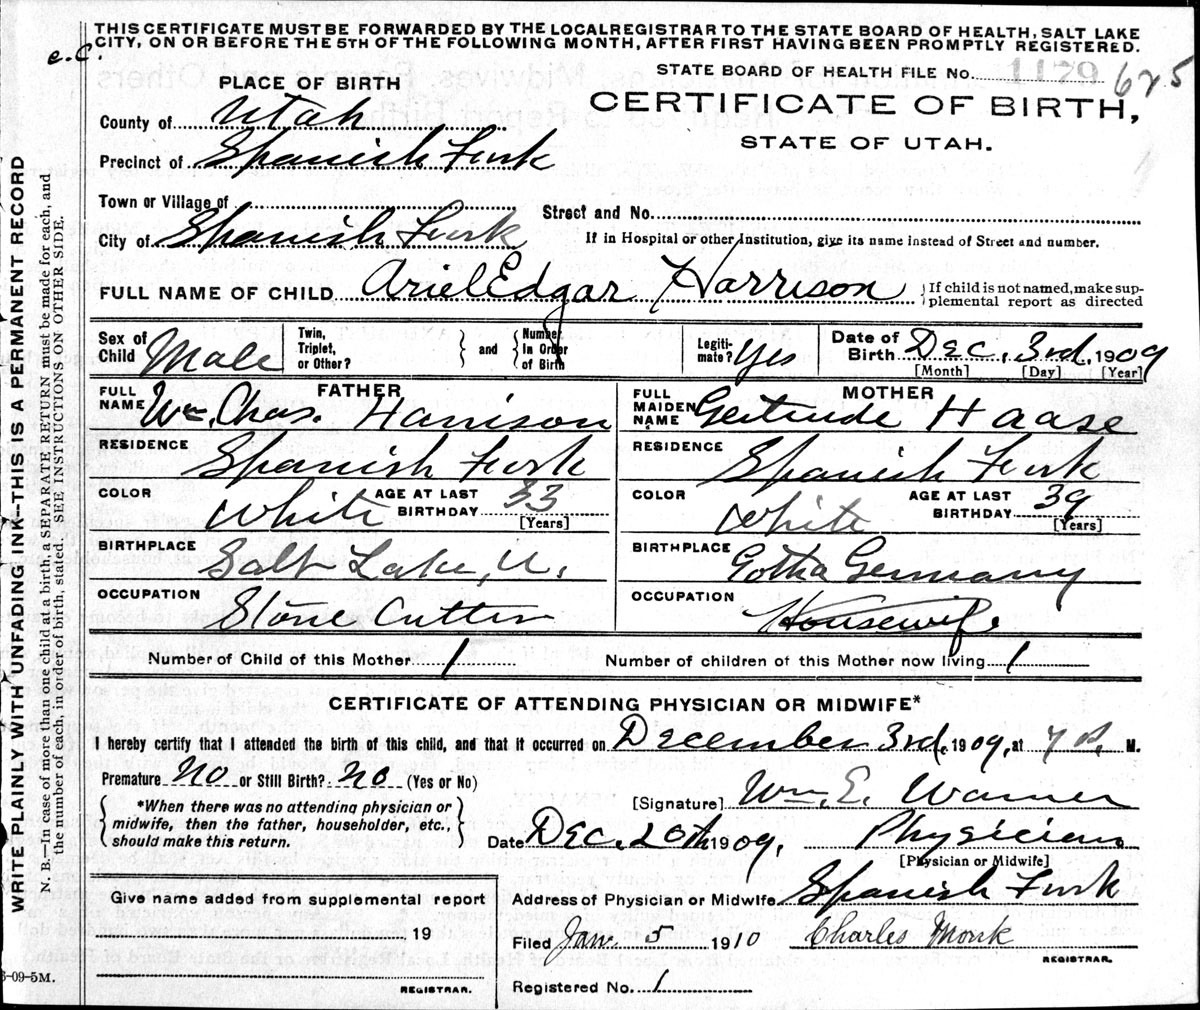 THIS CERTIFICATE MUST BE FORWARDED BY THE LOCAL REGISTRAR TO THE STATE BOARD OF HEALTH, SALT LAKE
CITY, ON OR BEFORE THE 5TH OF THE FOLLOWING MONTH, AFTER FIRST HAVING BEEN PROMPTLY REGISTERED.
e.C.
STATE BOARD OF HEALTH FILE No. 1179 625
PLACE OF BIRTH
CERTIFICATE OF BIRTH,
STATE OF UTAH.
County of Utah
Precinct of Spanish Fork
Town or Village of
Street and No.
City of Spanish Fork
If in Hospital or other Institution, give its name instead of Street and number.
FULL NAME OF CHILD Ariel Edgar Harrison
If child is not named, make sup-
plemental report as directed
Sex of Child Male
Twin, Triplet, or Other?
and
Number In Order of Birth
Legiti-mate? Yes
Date of Birth Dec. 3rd, 1909
[Month] [Day] [Year]
FATHER
FULL NAME Wm Chas. Harrison
RESIDENCE Spanish Fork
COLOR White AGE AT LAST BIRTHDAY 33
[Years]
BIRTHPLACE Salt Lake, U.
OCCUPATION Stone Cutter
MOTHER
FULL MAIDEN NAME Gertrude Haase
RESIDENCE Spanish Fork
COLOR White AGE AT LAST BIRTHDAY 39
[Years]
BIRTHPLACE Gotha Germany
OCCUPATION Housewife
Number of Child of this Mother 1
Number of children of this Mother now living 1
CERTIFICATE OF ATTENDING PHYSICIAN OR MIDWIFE*
I hereby certify that I attended the birth of this child, and that it occurred on December 3rd, 1909, at 7 P. M.
Premature No or Still Birth? No (Yes or No)
*When there was no attending physician or
midwife, then the father, householder, etc.,
should make this return.
[Signature] Wm. E. Warner
Date Dec. 20th 1909. Physician
[Physician or Midwife]
Give name added from supplemental report
19
REGISTRAR.
Address of Physician or Midwife Spanish Fork
Filed Jan. 5 1910 Charles Monk
REGISTRAR.
Registered No. 1
WRITE PLAINLY WITH UNFADING INK--THIS IS A PERMANENT RECORD
N. B.—In case of more than one child at a birth, a SEPARATE RETURN must be made for each, and
the number of each, in order of birth, stated. SEE INSTRUCTIONS ON OTHER SIDE.
-09-5M.